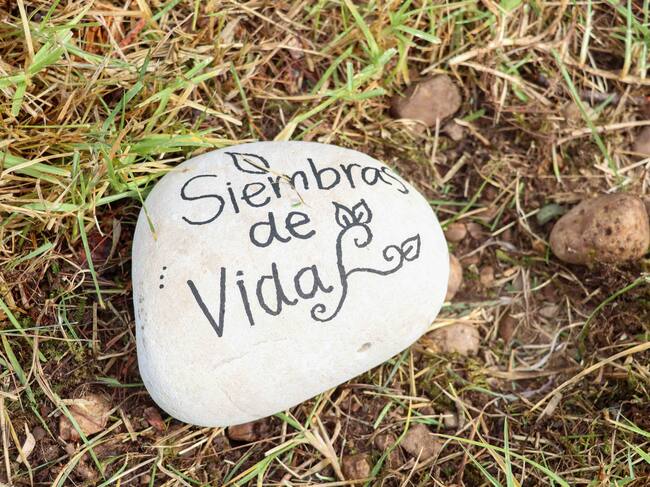 Siembras
de
Vida